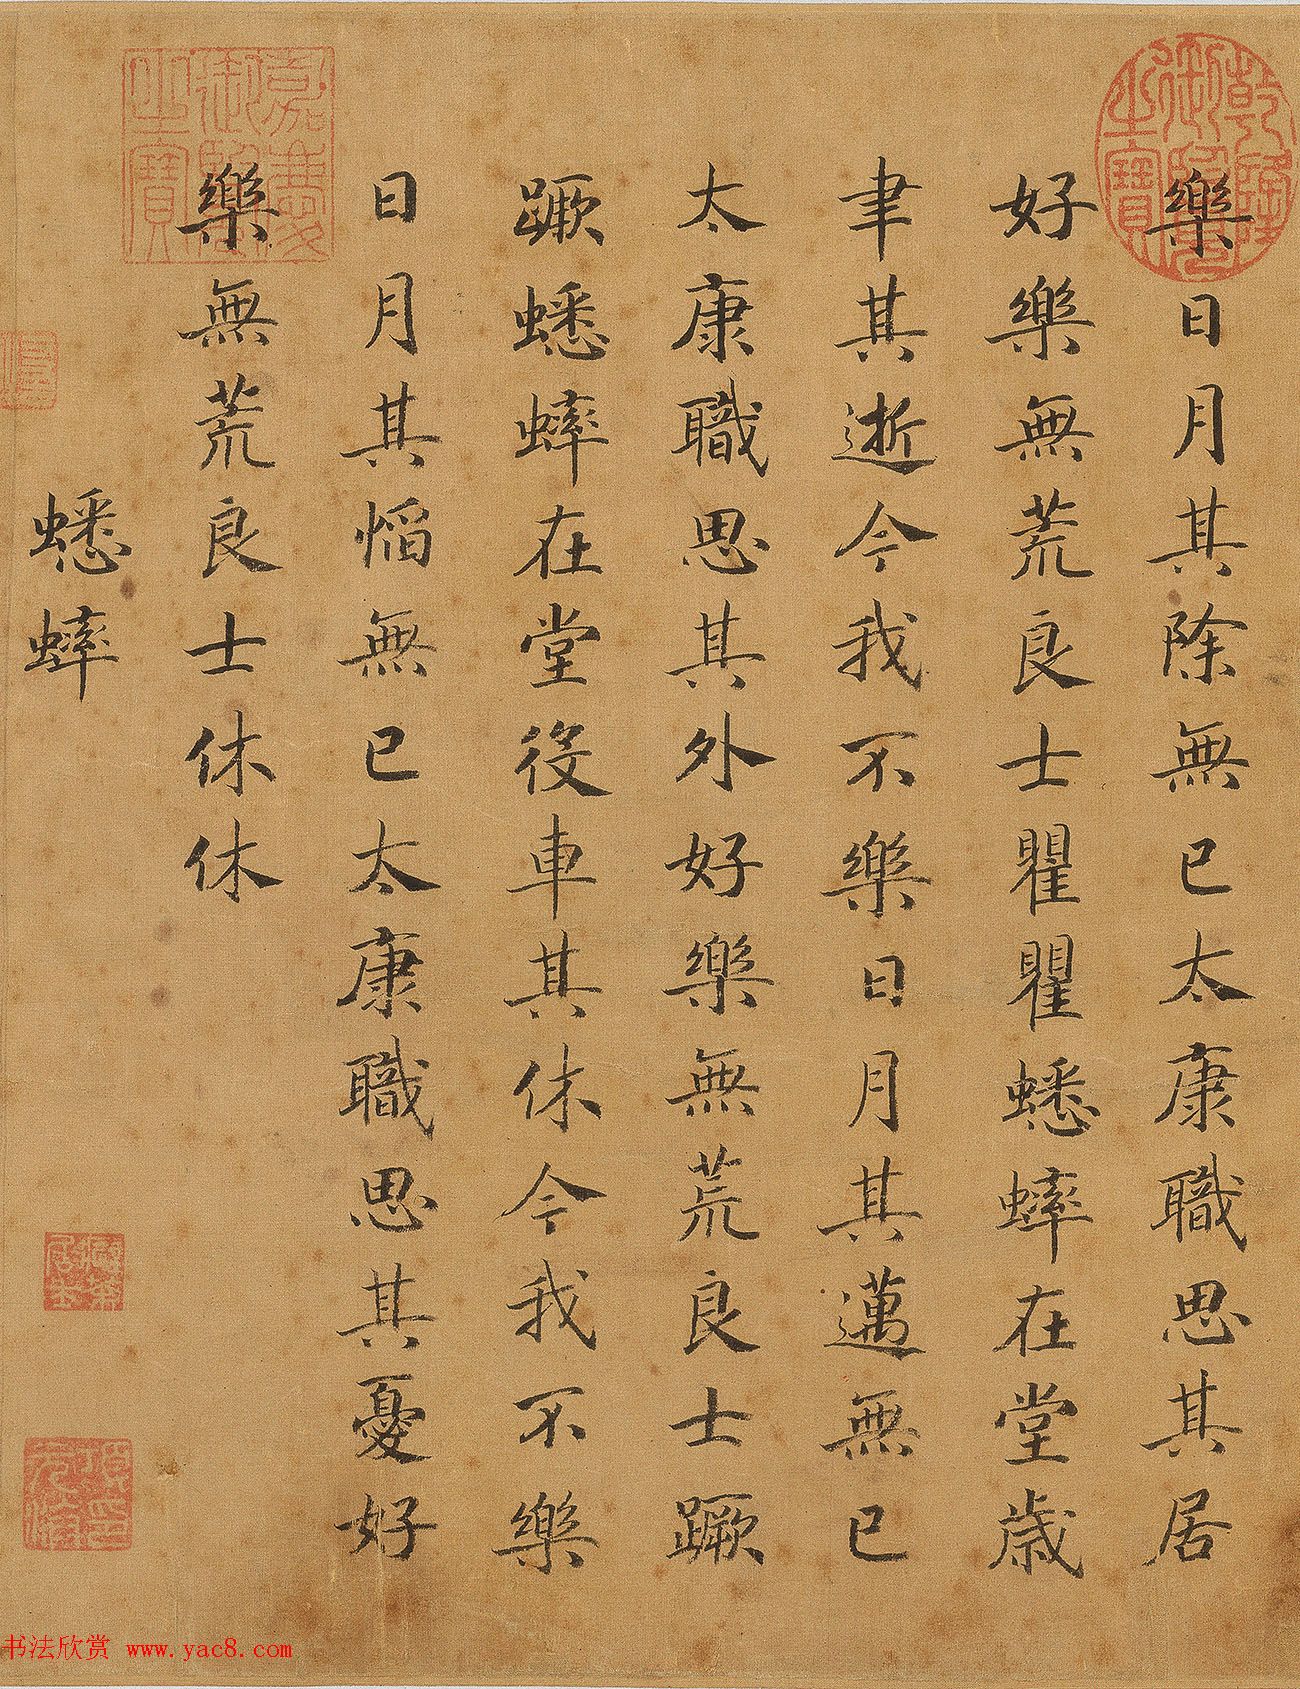 樂日月其除無已太康職思其居
好樂無荒良士瞿瞿蟋蟀在堂歲
聿其逝今我不樂日月其邁無已
太康職思其外好樂無荒良士蹶
蹶蟋蟀在堂役車其休今我不樂
日月其慆無已太康職思其憂好
樂無荒良士休休
蟋蟀
乾隆御覽之寶
嘉慶御覽之寶
书法欣赏 www.yac8.com